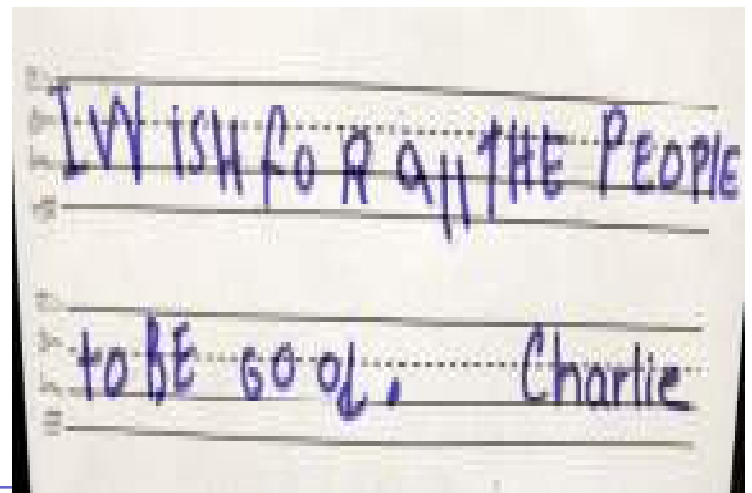 I WisH foR all tHE PEOPlE
to BE GOOd. Charlie